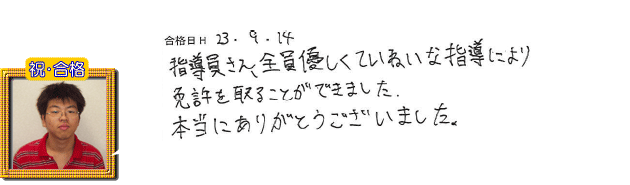 合格日H 23.9.14
祝・合格
指導員さん、全員優しくていねいな指導により
免許を取ることができました.
本当にありがとうございました。